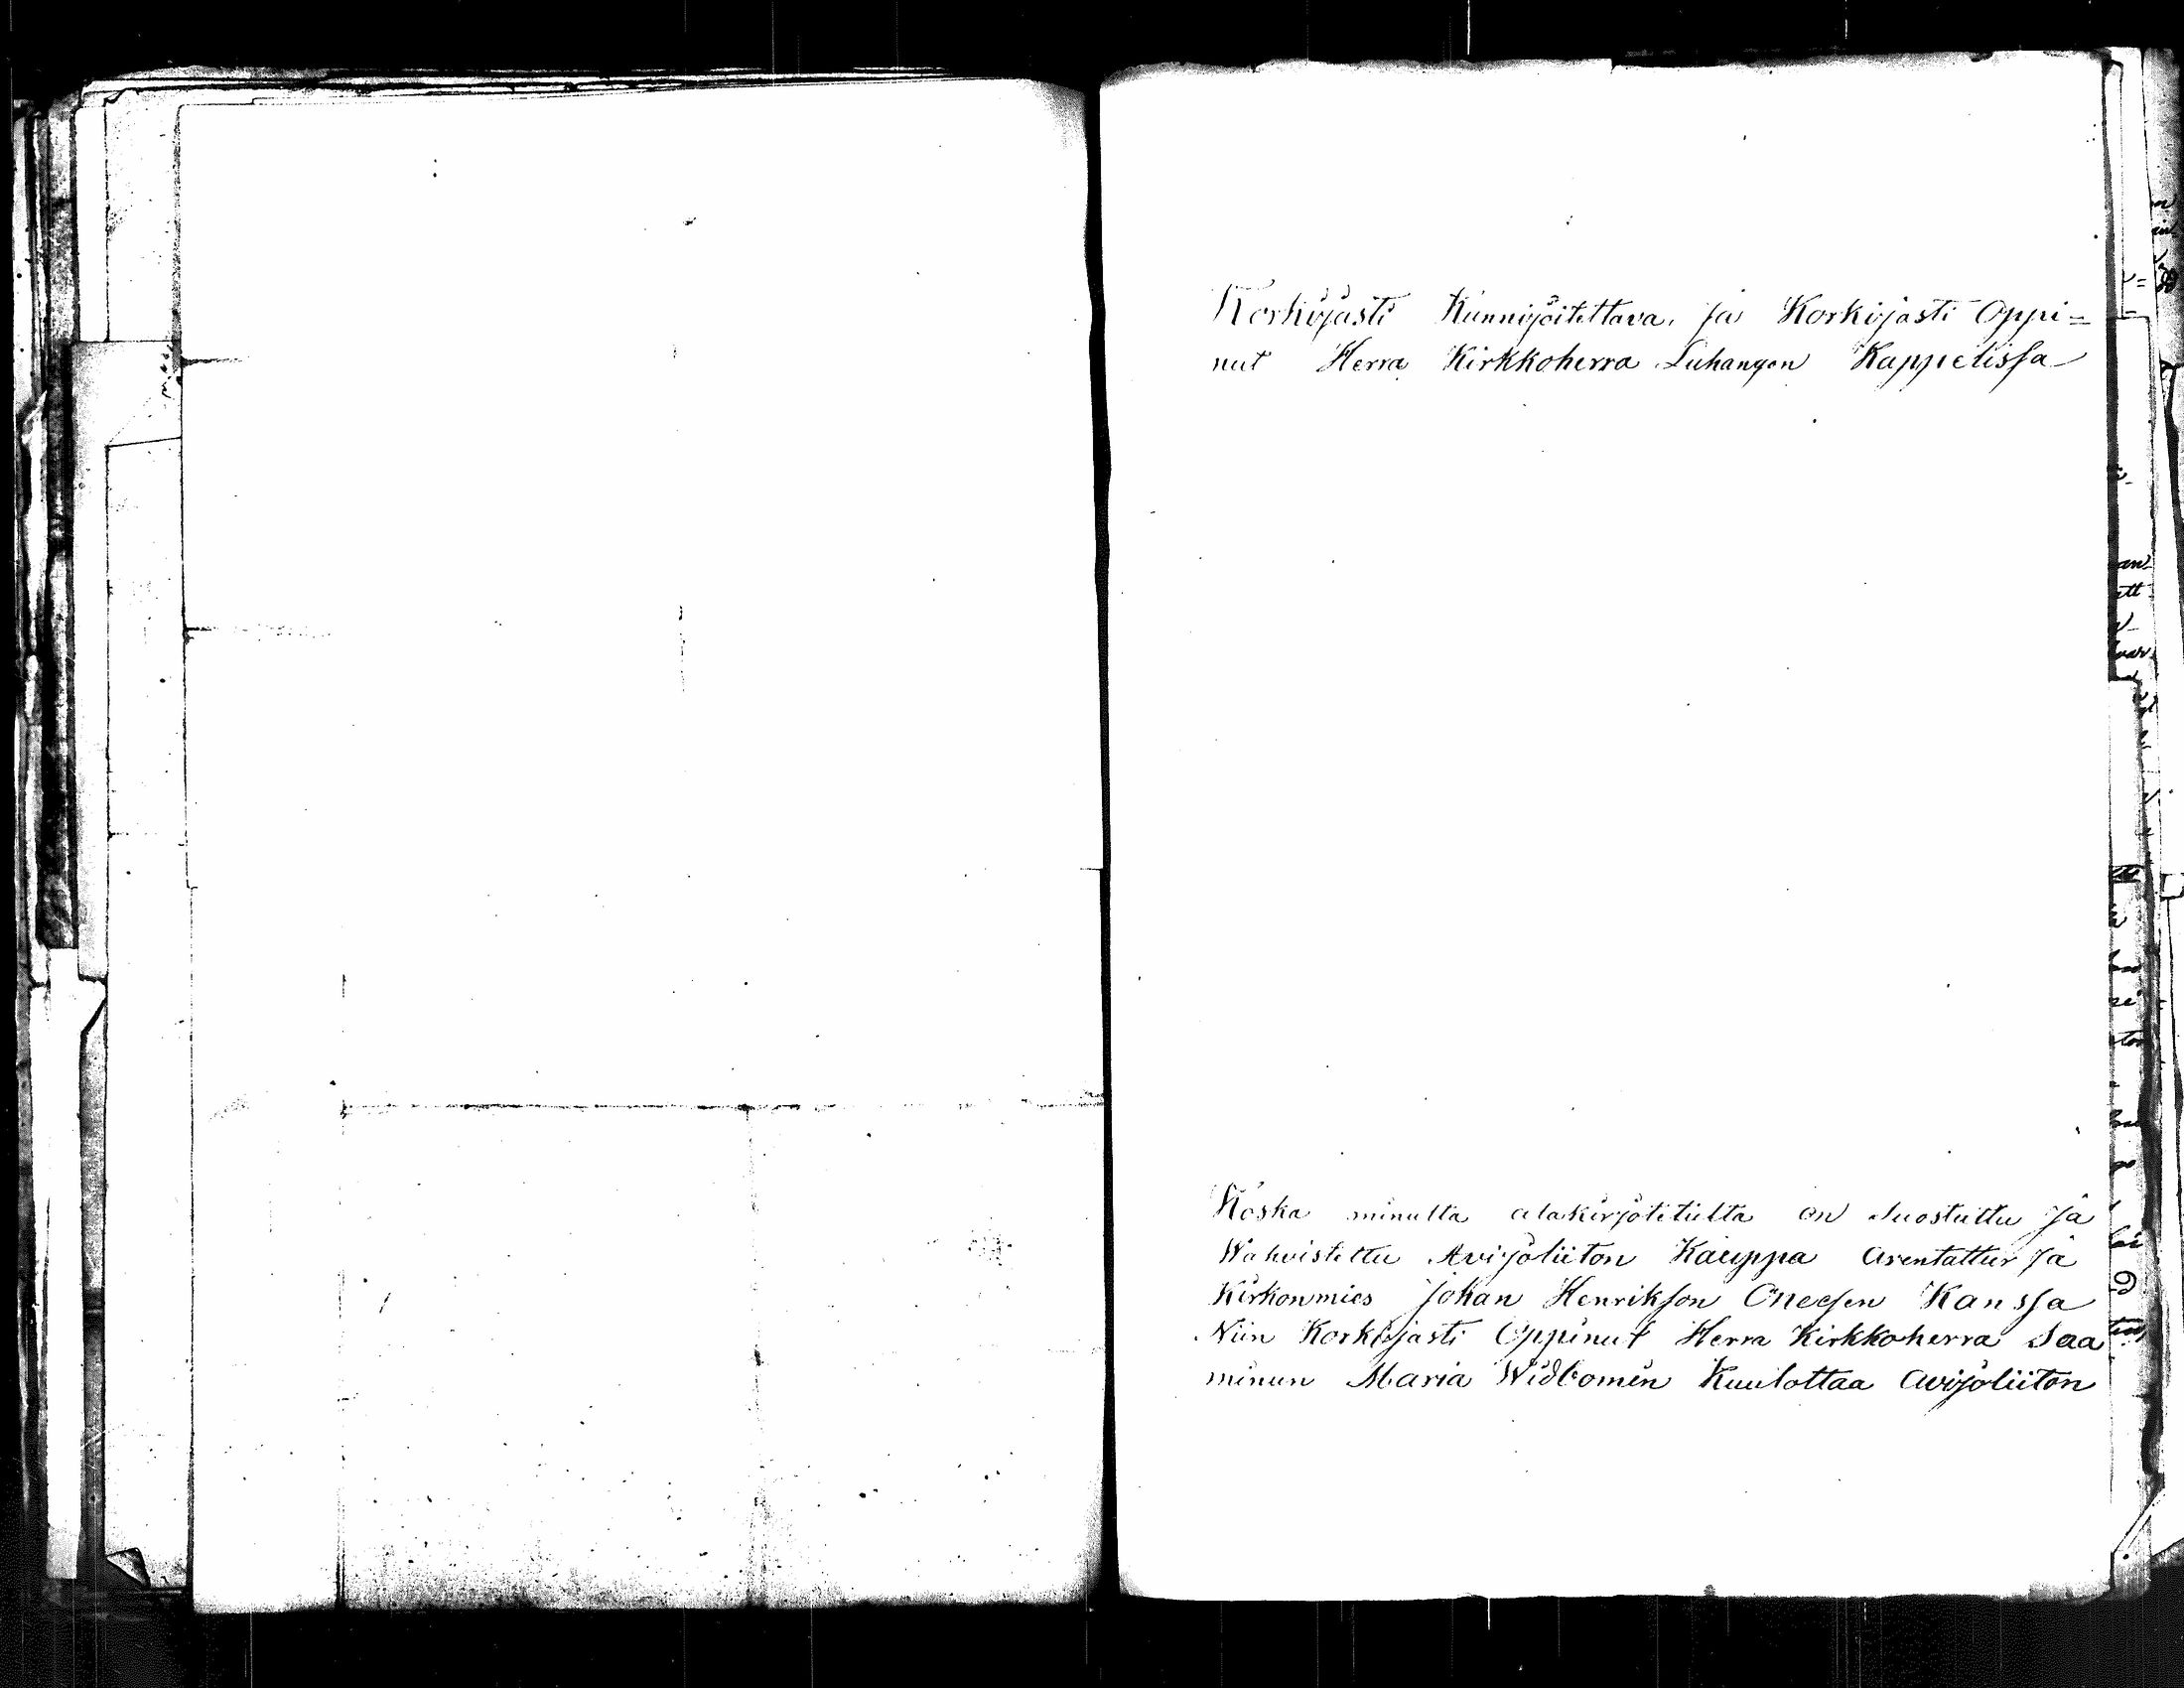 Korkijasti Kunnijoitettava, ja Korkijasti Oppi=
nut Herra Kirkkoherra Luhangon Kappelissa
Koska minulta alakirjotetulta on Suostuttu ja
Wahvistettu Avijoliiton Kauppa Arentattur ja
Kirkonmies Johan Henrikson Onesen Kanssa
Niin Korkijasti Oppinut Herra Kirkkoherra Saa
minun Maria Widbomin Kuulottaa Avijoliiton